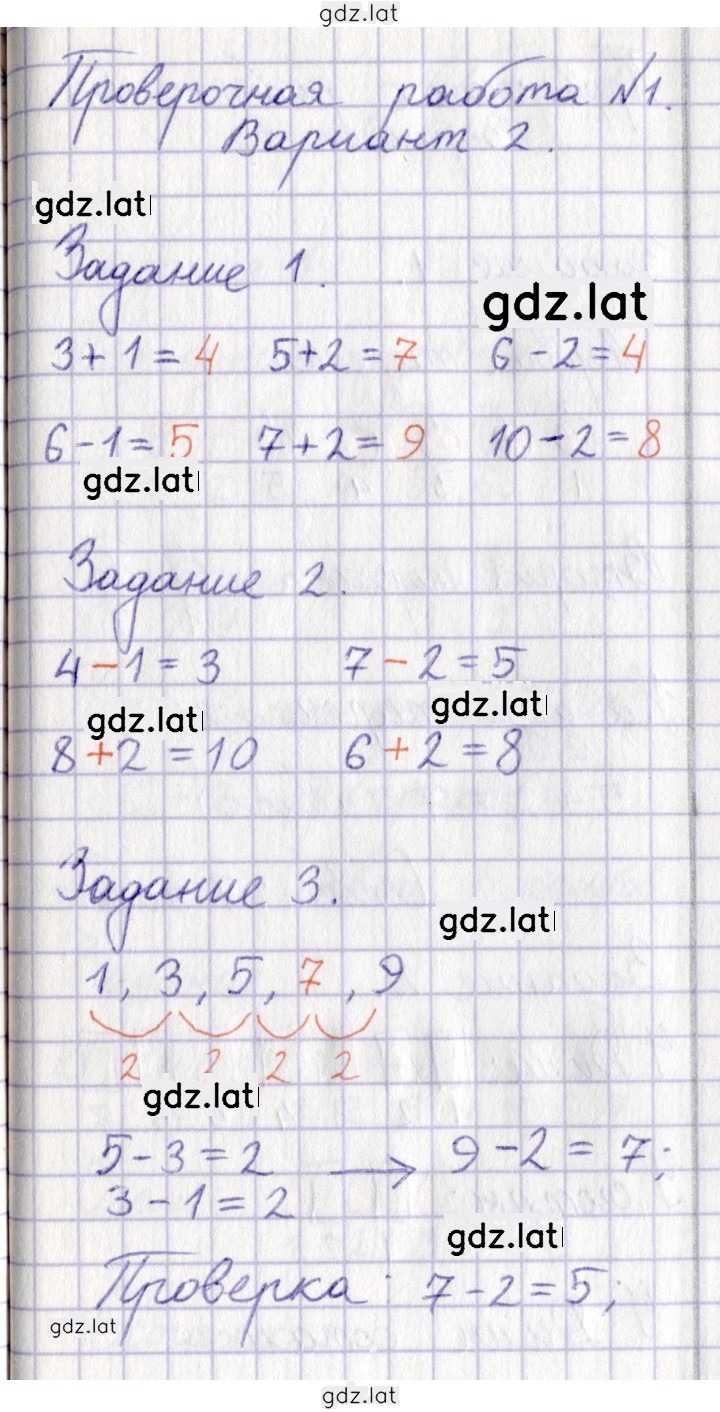 gdz.lat
Проверочная работа №1.
Вариант 2.
gdz.lat
Задание 1.
gdz.lat
3+1=4 5+2=7 6-2=4
6-1=5 7+2=9 10-2=8
gdz.lat
Задание 2.
4-1=3 7-2=5
gdz.lat gdz.lat
8+2=10 6+2=8
Задание 3.
gdz.lat
1, 3, 5, 7, 9
2 2 2 2
gdz.lat
5-3=2 → 9-2=7;
3-1=2
gdz.lat
Проверка: 7-2=5;
gdz.lat
gdz.lat